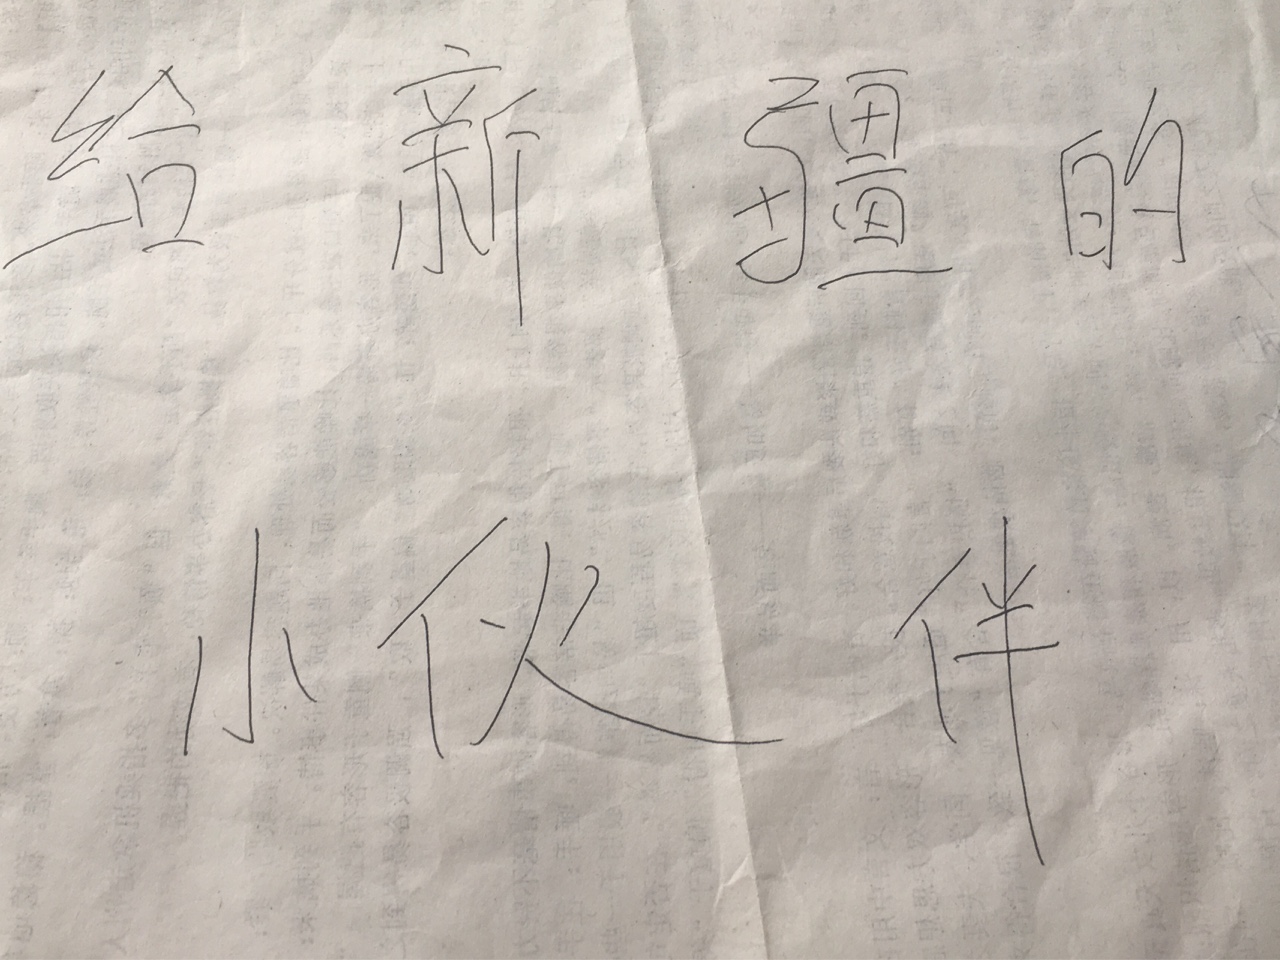 给新疆的
小伙伴